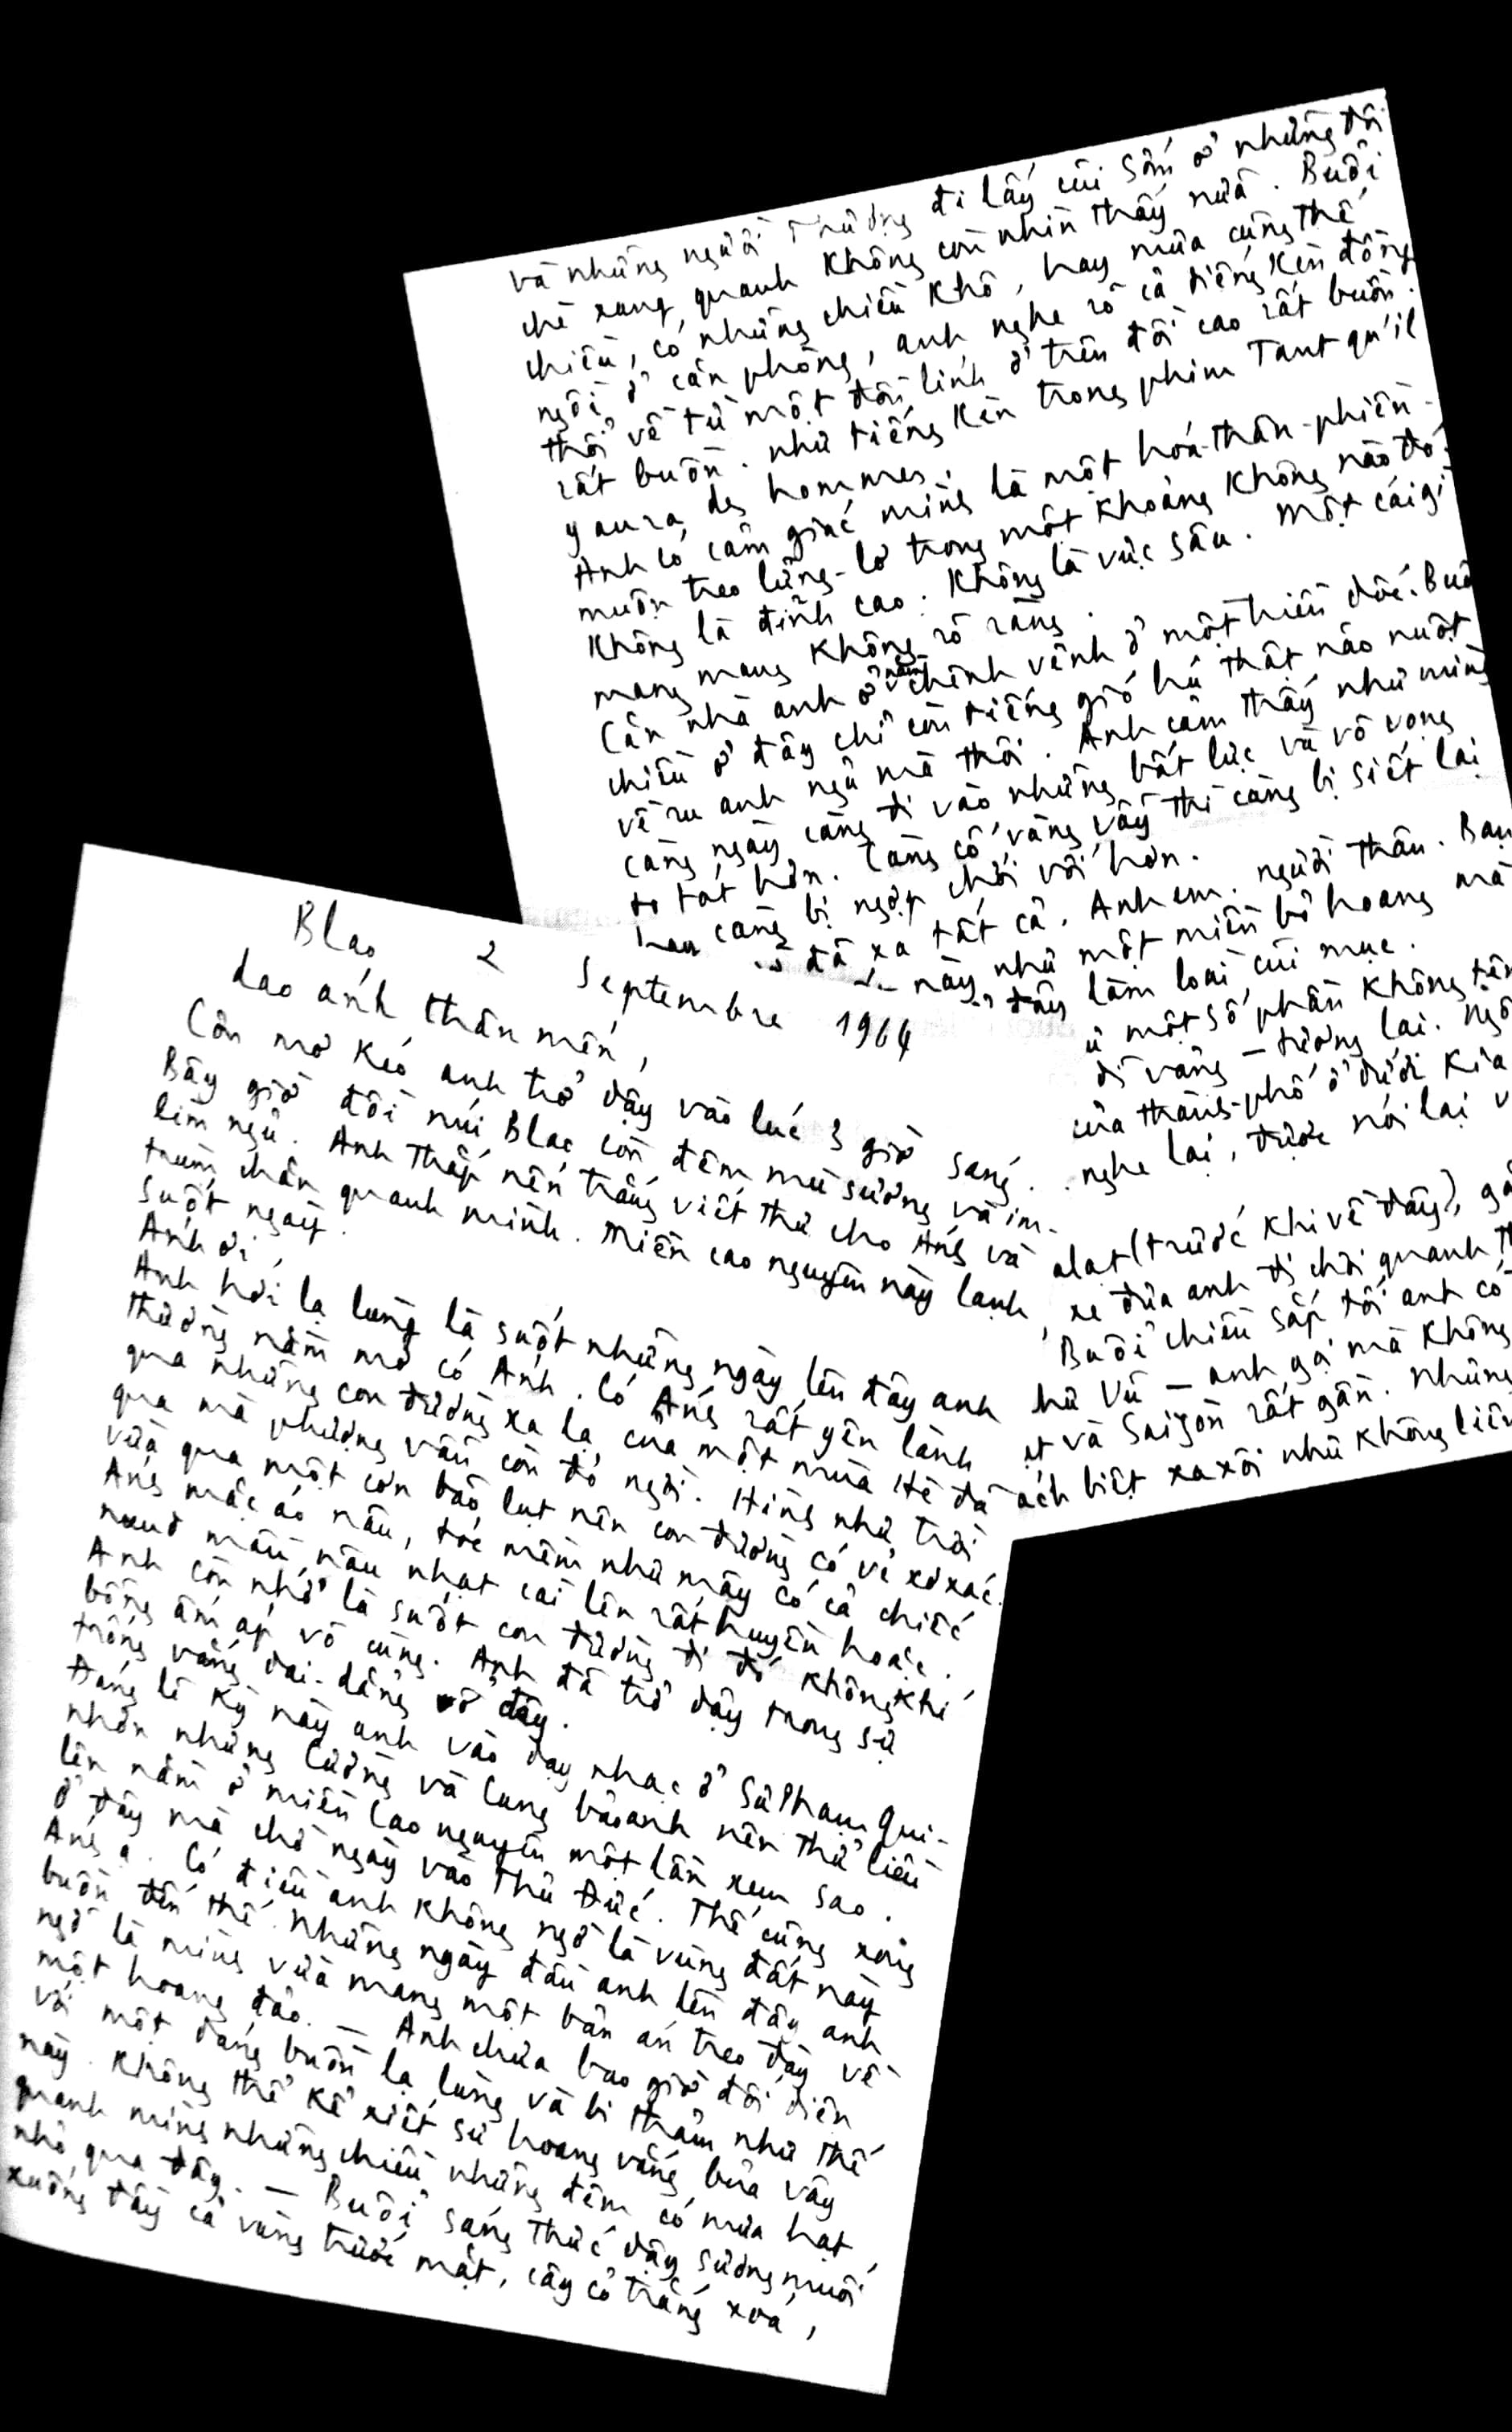 Blao 2 Septembre 1964
Dao ánh thân mến,
Cơn mơ kéo anh trở dậy vào lúc 3 giờ sáng.
Bây giờ đồi núi Blao còn đêm mù sương và im-
lìm ngủ. Anh thắp nến trắng viết thư cho Ánh và
trùm chăn quanh mình. Miền cao nguyên này lạnh
suốt ngày.
Ánh ơi,
Anh hơi lạ lùng là suốt những ngày lên đây anh
thường nằm mơ có Ánh. Có Ánh rất yên lành
qua những con đường xa lạ của một mùa Hè đã
qua mà phượng vẫn còn đỏ ngời. Hình như trời
vừa qua một cơn bão lụt nên con đường có vẻ xơ xác.
Ánh mặc áo nâu, tóc mềm như mây có cả chiếc
nơ màu nâu nhạt cài lên rất huyền hoặc.
Anh còn nhớ là suốt con đường đi đó không khí
bỗng ấm áp vô cùng. Anh đã trở dậy trong sự
trống vắng dai-dẳng ở đây.
Đáng lẽ kỳ này anh vào dạy nhạc ở Sư Phạm Qui-
nhơn nhưng Cường và Cung bảo anh nên thử liều
lên nằm ở miền Cao nguyên một lần xem sao.
Ở đây mà chờ ngày vào Thủ Đức. Thế cũng xong
Ánh ạ. Có điều anh không ngờ là vùng đất này
buồn đến thế. Những ngày đầu anh lên đây anh
ngỡ là mình vừa mang một bản án treo đày về
một hoang đảo. — Anh chưa bao giờ đối diện
với một dáng buồn lạ lùng và bi thảm như thế
này. Không thể kể xiết sự hoang vắng bủa vây
quanh mình những chiều những đêm có mưa hạt
nhỏ qua đây. — Buổi sáng thức dậy sương muối
xuống đầy cả vùng trước mặt, cây cỏ trắng xoá,
và những người Thượng đi lấy củi sớm ở những đồi
chè xung quanh không còn nhìn thấy nữa. Buổi
chiều, có những chiều khô, hay mưa cũng thế
ngồi ở căn phòng, anh nghe rõ cả tiếng kèn đồng
thổi về từ một đồn lính ở trên đồi cao rất buồn.
rất buồn. như tiếng kèn trong phim Tant qu'il
y aura des hommes.
Anh có cảm giác mình là một hoá-thân-phiền-
muộn treo lửng-lơ trong một khoảng không nào đó.
Không là đỉnh cao. Không là vực sâu. Một cái gì
mang mang không rõ ràng.
Căn nhà anh ở nằm chênh vênh ở một triền dốc. Buổi
chiều ở đây chỉ còn tiếng gió hú thật não nuột
về ru anh ngủ mà thôi. Anh cảm thấy như mình
càng ngày càng đi vào những bất lực và vô vọng
to tát hơn. Càng cố vùng vẫy thì càng bị siết lại
hay càng bị ngợp chới với hơn.
đã xa tất cả. Anh em. người thân. Bạn
này như một miền bỏ hoang mà
đây làm loài củi mục.
một số phần không tên
dĩ vãng — tương lai.
của thành-phố ở dưới kia
nghe lại, được nói lại
alat (trước khi về đây),
xe đưa anh đi chơi quanh
Buổi chiều sắp tối anh có
hư Vũ — anh gọi mà không
ạt và Saigon rất gần. Nhưng
ách biệt xa xôi như không liên